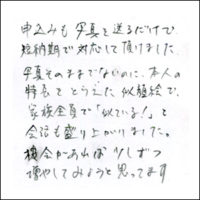 申込みも写真を送るだけで
短納期で対応して頂けました。
写真そのままでないのに、本人の
特長をとらえた似顔絵で、
家族全員で「似ている！」と
会話も盛り上がりました。
機会があれば少しずつ
増やしてみようと思ってます